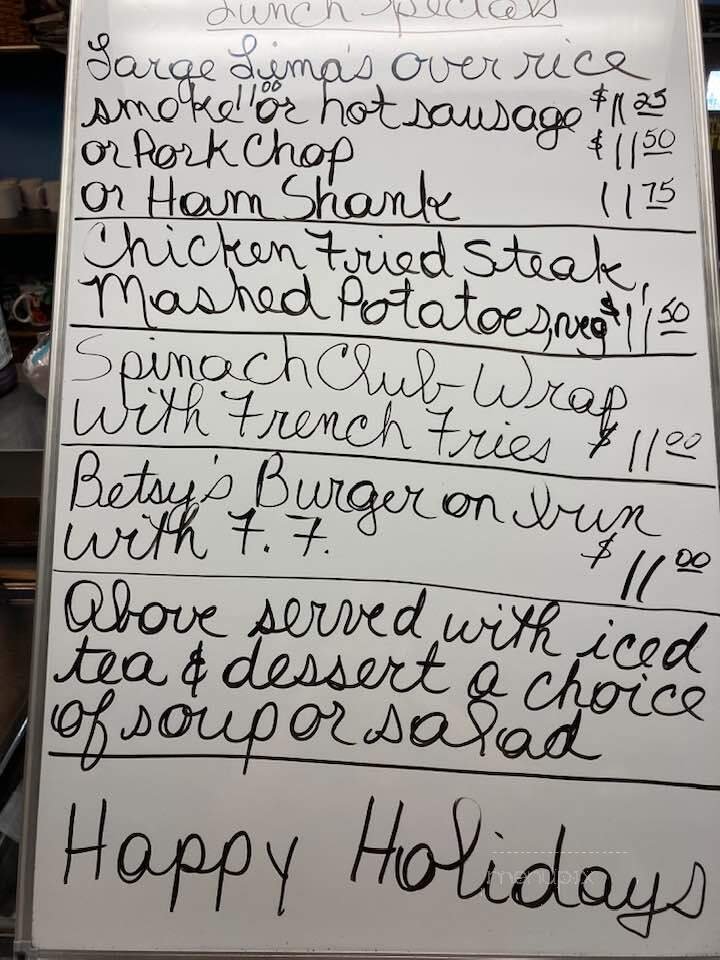 Lunch Specials
Large Lima's over rice
smoke 11.00 or hot sausage $11.25
or Pork Chop $11.50
or Ham Shank 11.75
Chicken Fried Steak,
Mashed Potatoes, veg $11.50
Spinach Club Wrap
with French Fries $11.00
Betsy's Burger on bun
with F.F. $11.00
Above served with iced
tea & dessert a choice
of soup or salad
Happy Holidays
menupix